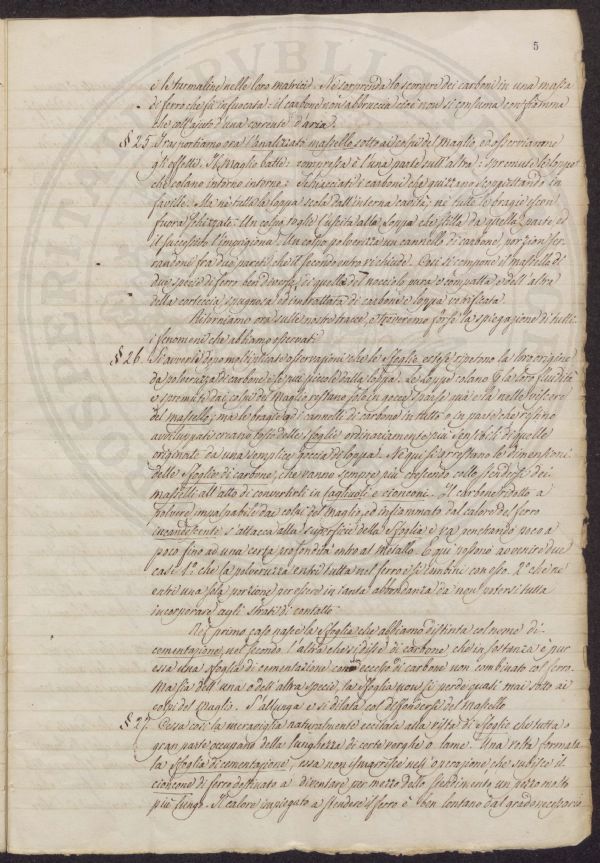 5
e le turmaline nelle loro matrici. Ne sorprenda lo scorgere dei carboni in una massa
di ferro che fu infuocata: il carbone non abbruccia cioè non si consuma con fiamma
che coll'ajuto d'una corrente d'aria.
§ 25. Trasportiamo ora l'analizzato massello sotto ai colpi del maglio, ed osserviamone
gli effetti. Il maglio batte: compressa è l'una parte sull'altra: spremute le loppe
che colano intorno intorno: schiacciati i carboni che guizzano scoppiettando in
faville. Ma nè tutta la loppa scola dall'interna cavità; nè tutte le bragie
fuora schizzate. Un colpo toglie l'uscita alla loppa che stilla da quella parte, ed
il successivo l'imprigiona. Un colpo polverizza un cannello di carbone, porzion ser-
randone fra due pareti che il secondo entro vi chiude. Così si compone il massello di
due specie di ferro ben diverse, di quella del nocciolo pura e compatta e dell'altra
della corteccia spugnosa ed imbrattata di carbone e loppa vetrificata.
Ritorniamo ora sulle nostre tracce, e troveremo forse la spiegazione di tutti
i fenomeni che abbiamo osservati.
§ 26. Si avverte dopo moltiplicate osservazioni che le sfoglie estese ripetono la loro origine
da polverizza di carbone e le più piccole dalla loppa. Le loppe colano per la loro fluidità
e spremute dai colpi del maglio restano solo in gocce sparse quà e là nelle viscere
del massello; ma le bragie ed i cannelli di carbone in tutto o in parte che restino
avviluppati creano tosto delle sfoglie ordinariamente più sensibili di quelle
originate da una semplice goccia di loppa. Nè qui si arrestano le dimensioni
delle sfoglie di carbone, che vanno sempre più crescendo collo stendersi dei
masselli all'atto di convertirli in tagliuoli e cionconi. Il carbone ridotto a
polvere impalpabile dai colpi del maglio, ed infiammato dal calore del ferro
incandescente s'attacca alla superficie della sfoglia e va penetrando poco a
poco fino ad una certa profondità entro al metallo. E qui possono avvenire due
casi. 1.° che la polveruzza entri tutta nel ferro e si combini con esso. 2.° che ne
entri una sola porzione per essere in tanta abbondanza da non potersi tutta
incorporare agli strati di contatto.
Nel primo caso nasce la sfoglia che abbiamo distinta col nome di
cementazione, nel secondo l'altra che si disse di carbone che in sostanza è pur
essa una sfoglia di cementazione con eccesso di carbone non combinato col ferro.
Ma sia dell'una o dell'altra specie, la sfoglia non si perde quasi mai sotto ai
colpi del maglio. S'allunga e si dilata col distendersi del massello.
§ 27. Cessa così la meraviglia naturalmente eccitata alla vista di sfoglie che tutta o
gran parte occupano della lunghezza di certe verghe o lame. Una volta formata
la sfoglia di cementazione, essa non smarrisce nell'operazione, che subisce il
cioncone di ferro destinato a diventare per mezzo dello stendimento un pezzo molto
più lungo. Il calore impiegato a stendere il ferro è ben lontano dal grado necessario